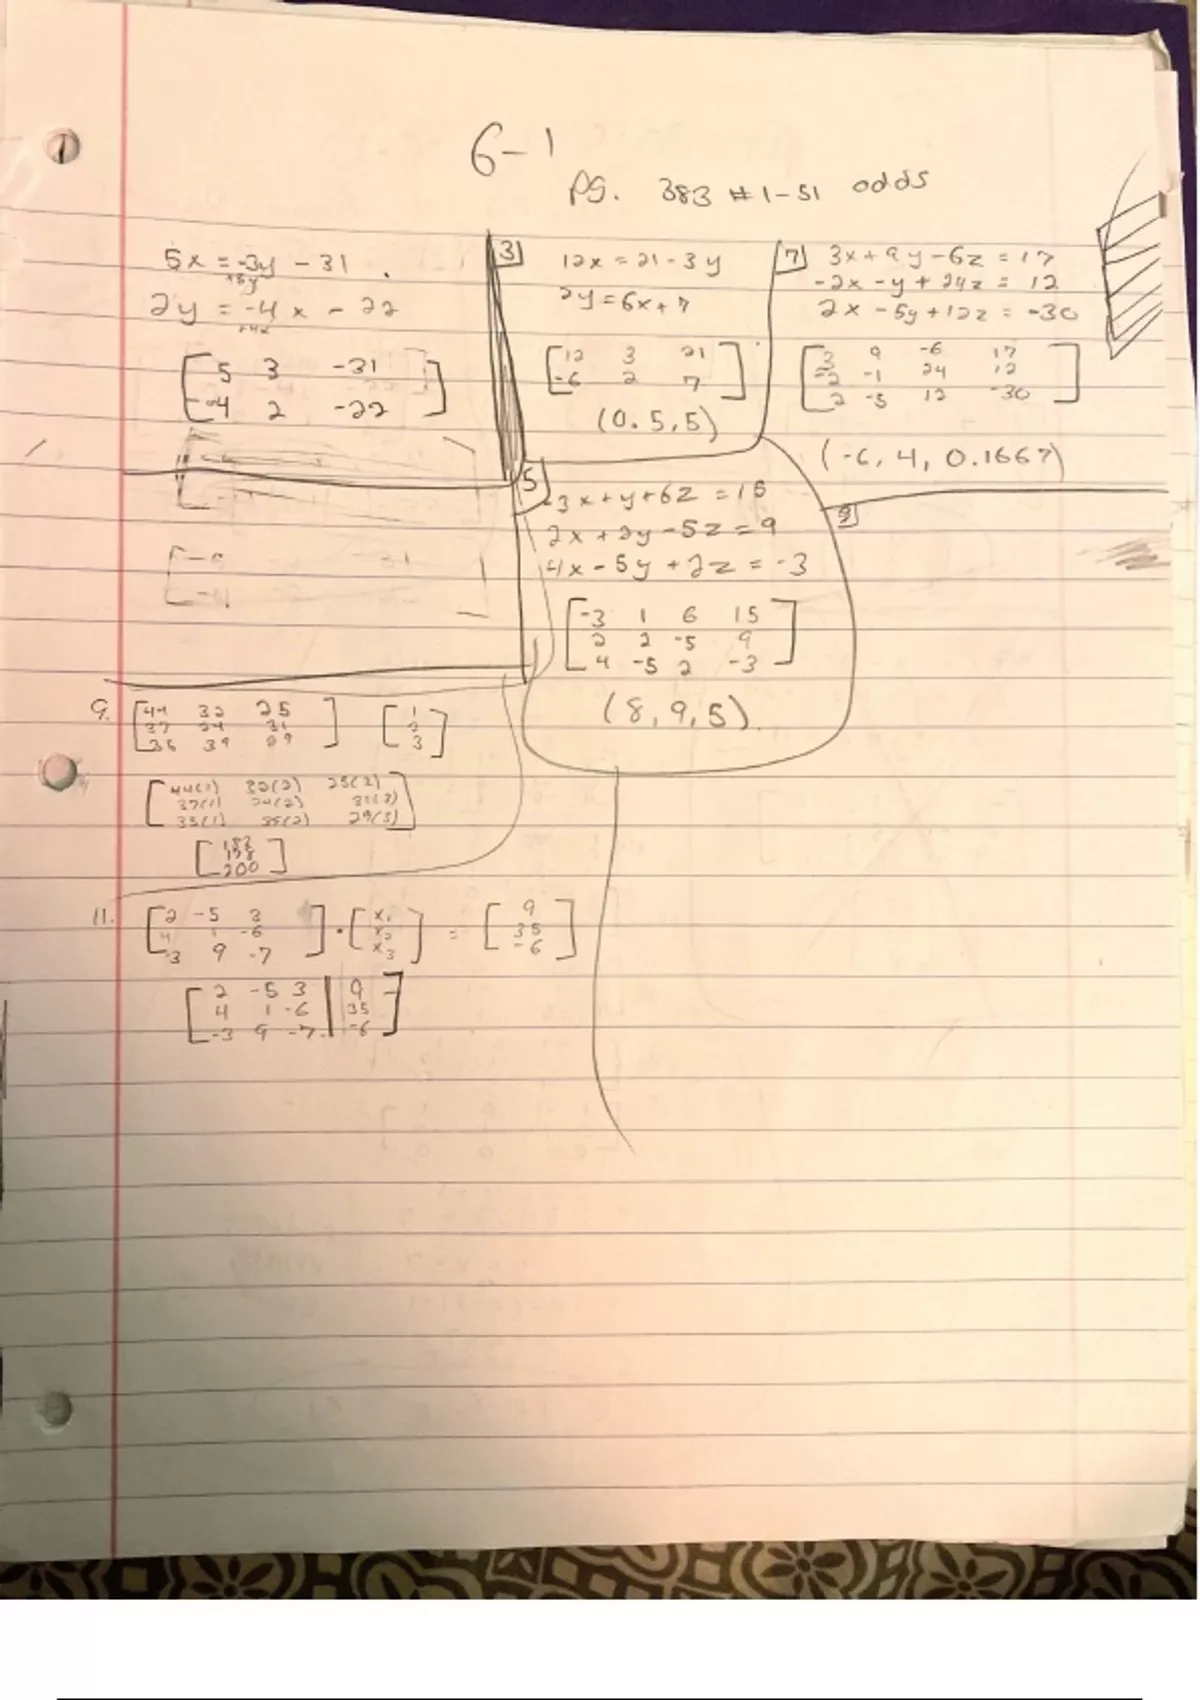 6-1
pg. 383 #1-51 odds
5x = -3y - 31
+3y
2y = -4x - 22
+4x
[5 3 -31]
[-4 2 -22]
3
12x = 21 - 3y
2y = 6x + 7
[12 3 21]
[-6 2 7]
(0.5,5)
7
3x + 9y - 6z = 17
-2x - y + 24z = 12
2x - 5y + 12z = -30
[3 9 -6 17]
[-2 -1 24 12]
[2 -5 12 -30]
(-6, 4, 0.1667)
5
-3x + y + 6z = 15
2x + 2y - 5z = 9
4x - 5y + 2z = -3
[-3 1 6 15]
[2 2 -5 9]
[4 -5 2 -3]
(8, 9, 5).
9
9. [44 32 25] [1]
[37 24 31] [2]
[35 39 29] [3]
[44(1) 32(2) 25(2)]
[37(1) 24(2) 31(3)]
[35(1) 35(2) 29(3)]
200
11. [2 -5 3] · [x1] = [9]
[4 1 -6] [x2] [35]
[-3 9 -7] [x3] [-6]
[2 -5 3 | 9]
[4 1 -6 | 35]
[-3 9 -7 | -6]